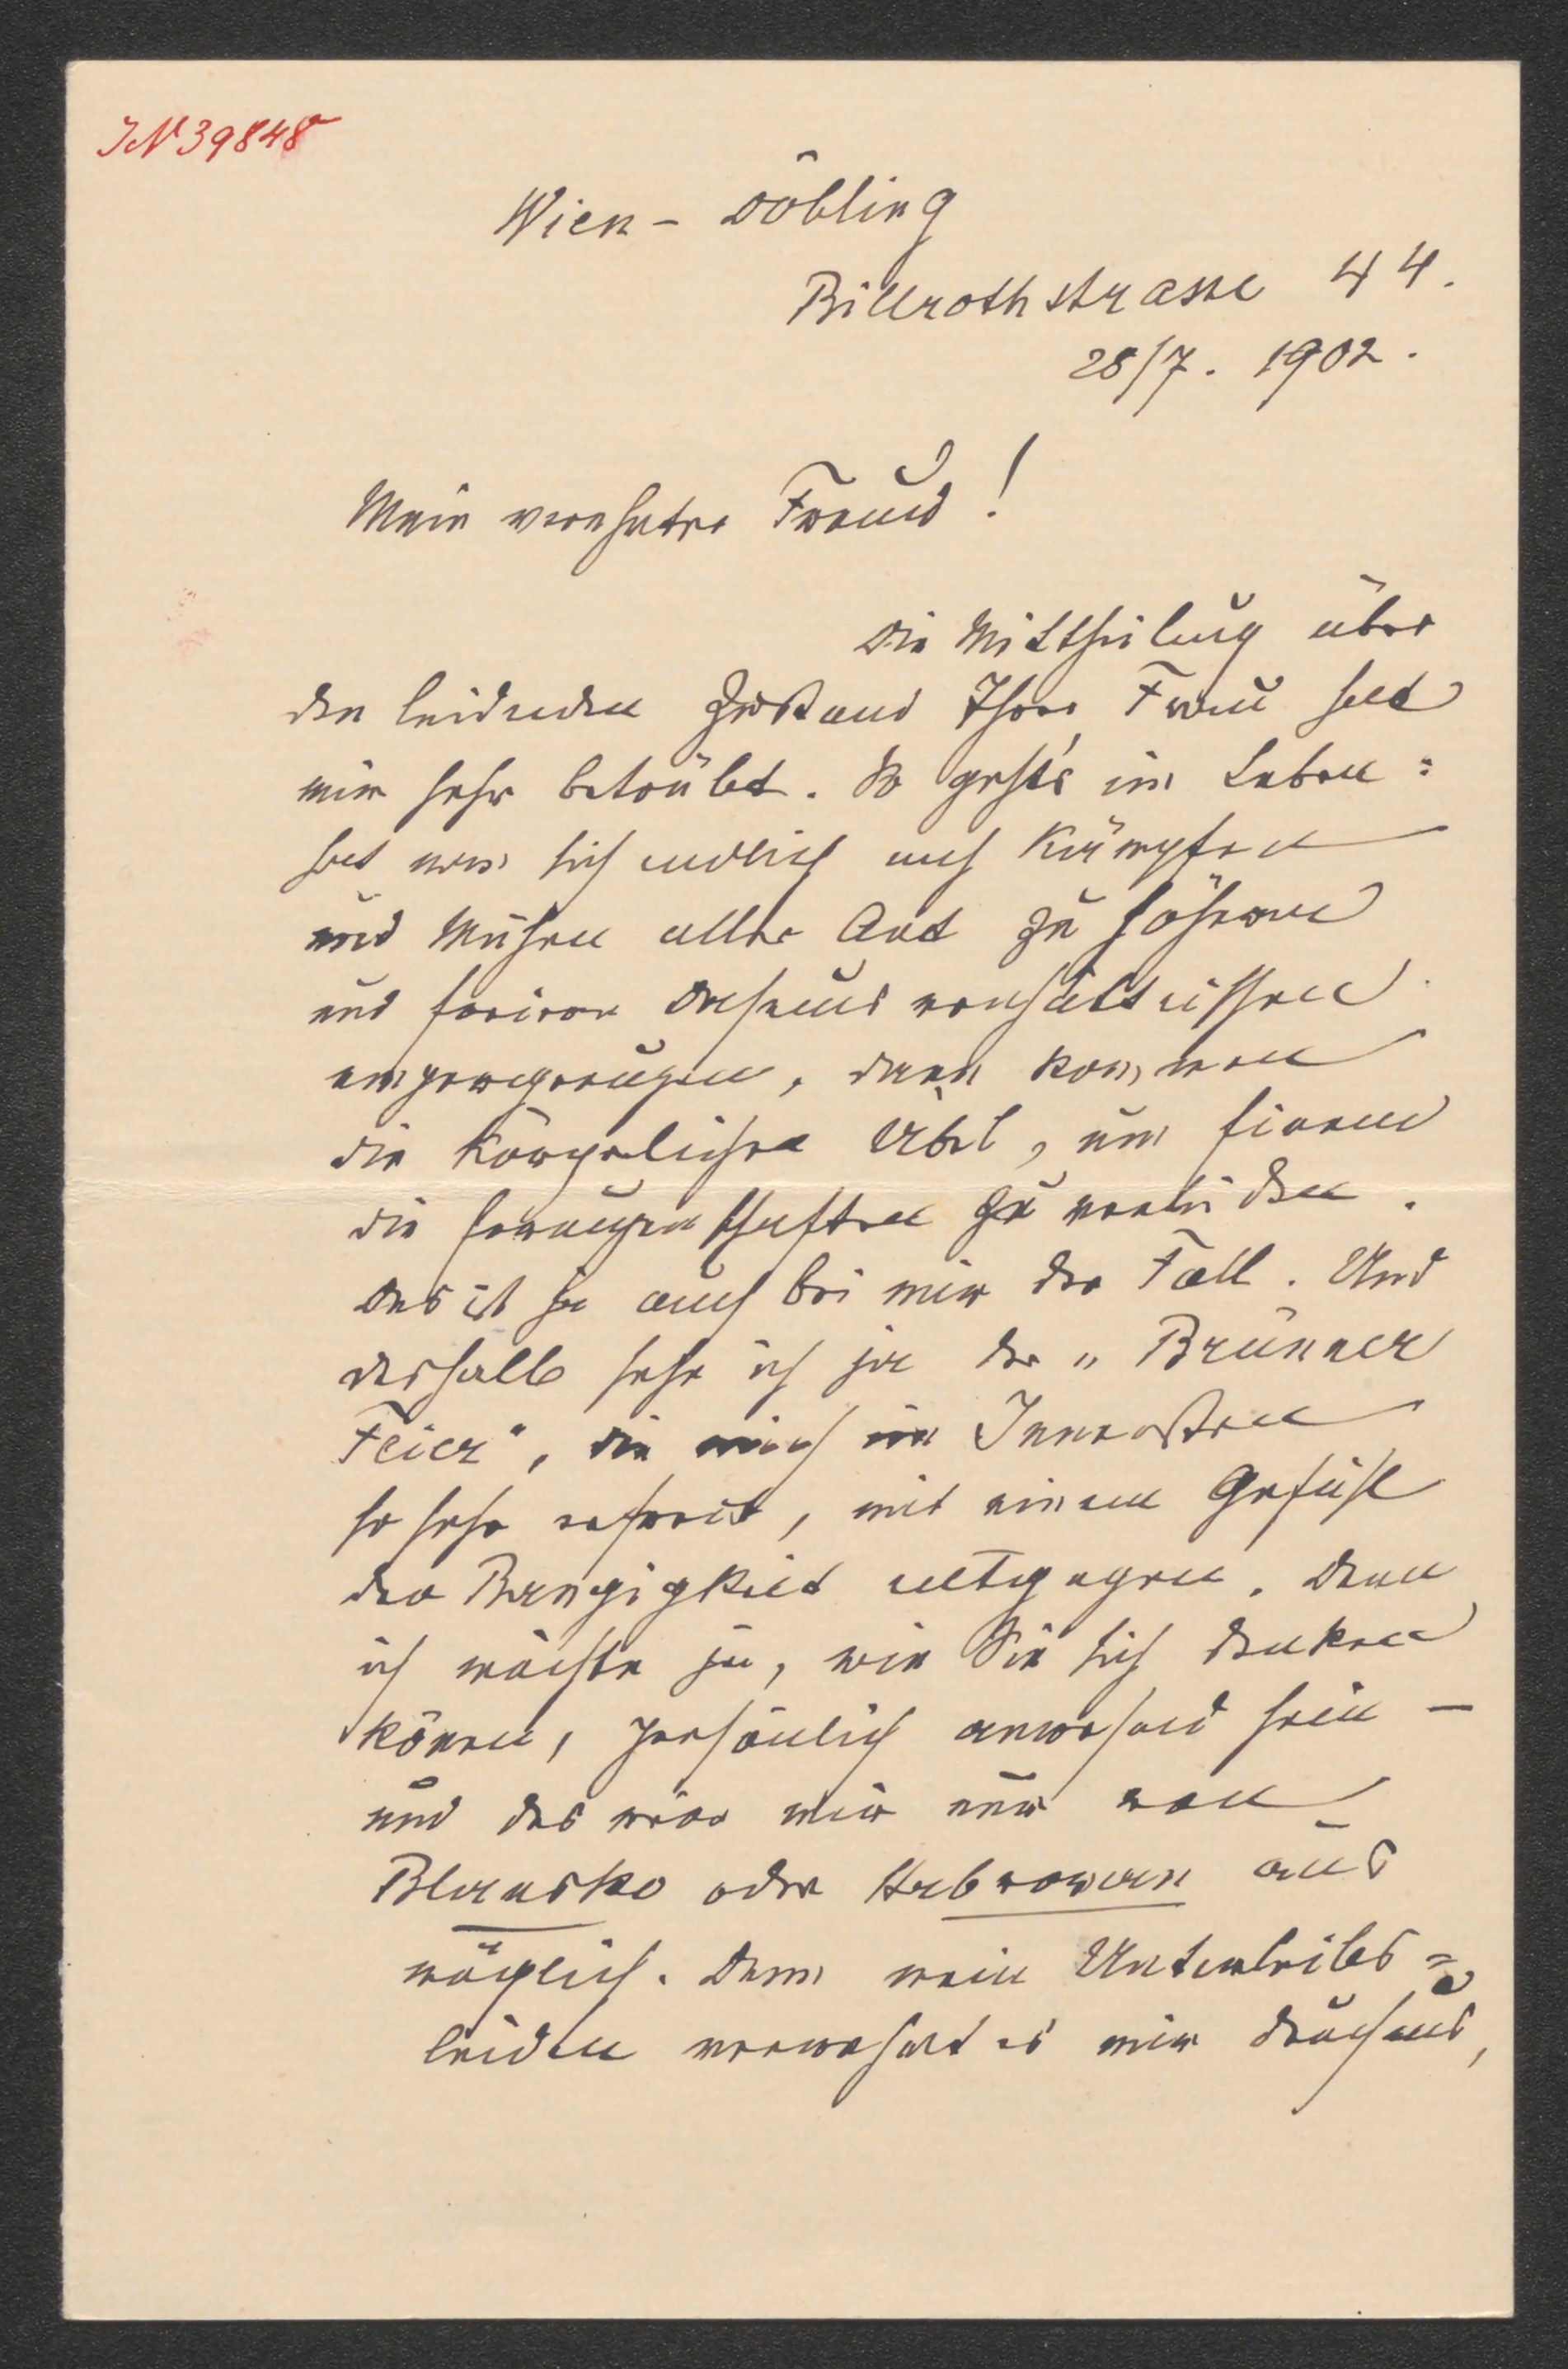 IN 39848
Wien - Döbling
Billrothstrasse 44.
28/7. 1902.
Mein verehrter Freund!
Die Mittheilung über
den leidenden Zustand Ihrer Frau hat
mich sehr betrübt. So geht's im Leben:
hat man sich endlich nach Kämpfen
und Mühen aller Art zu höheren
und freieren Daseinsverhältnissen
emporgerungen, dann kommen
die körperlichen Übel, um Einem
die Errungenschaften zu verleiden.
Das ist ja auch bei mir der Fall. Und
deshalb sehe ich ja der „Brünner
Feier", die mich im Innersten
so sehr erfreut, mit einem Gefühl
der Bangigkeit entgegen. Denn
ich möchte ja, wie Sie sich denken
können, persönlich anwesend sein -
und das wäre mir nur von
Blansko oder Habrowan aus
möglich. Denn mein Unterleibs=
leiden verwehrt es mir durchaus,